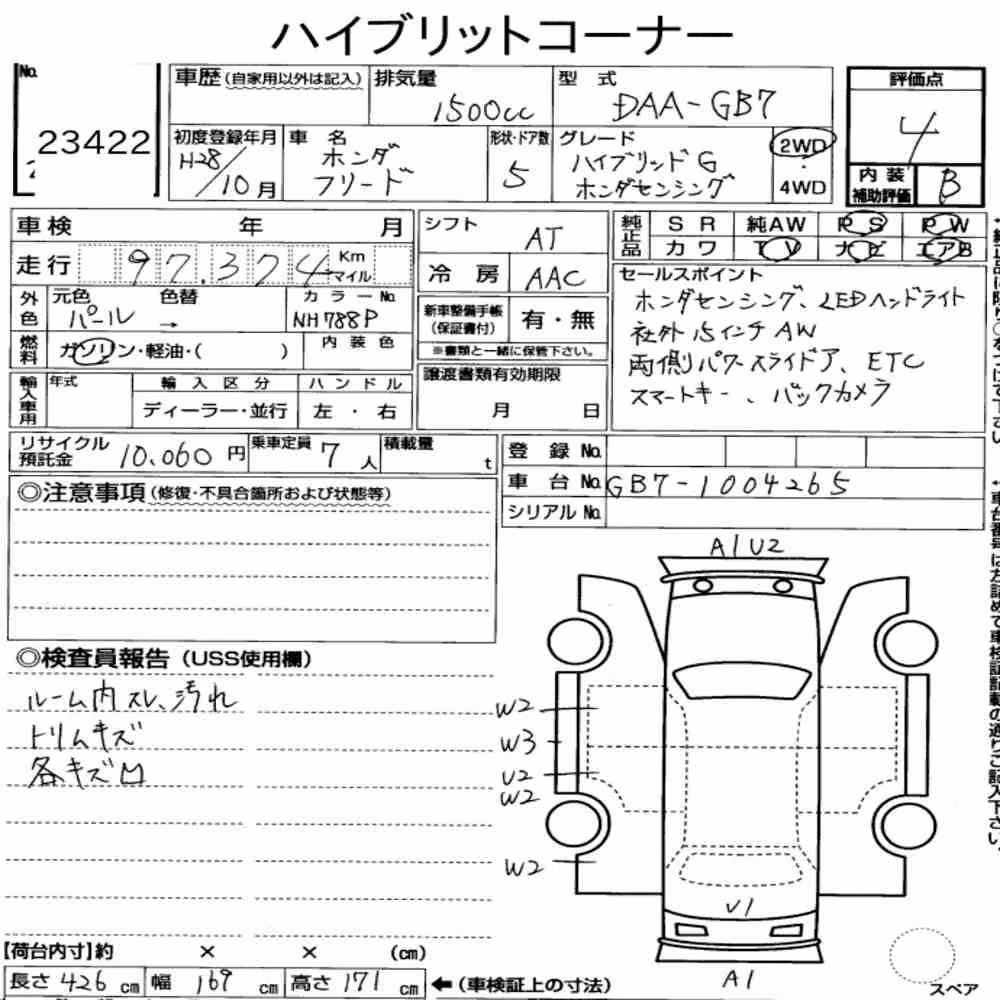 ハイブリットコーナー
No.
23422
車歴(自家用以外は記入)
排気量
1500cc
型 式
DAA-GB7
評価点
4
初度登録年月
H28/10月
車 名
ホンダ
フリード
形状・ドア数
5
グレード
ハイブリッドG
ホンダセンシング
2WD
・
4WD
内 装
補助評価
B
車検 年 月
シフト
AT
純正品
S R 純AW P S P W
カ ワ T V ナ ビ エアB
走行 97.374 Km マイル
冷 房
AAC
セールスポイント
ホンダセンシング、LEDヘッドライト
社外15インチAW
両側パワースライドドア、ETC
スマートキー、バックカメラ
外色
元色 色替
パール →
カラーNo.
NH788P
新車整備手帳
(保証書付)
有・無
※書類と一緒に保管下さい。
燃料
ガソリン・軽油・( )
内 装 色
譲渡書類有効期限
月 日
輸入車用
年式
輸 入 区 分
ディーラー・並行
ハ ン ド ル
左 ・ 右
リサイクル
預託金
10.060 円
乗車定員
7 人
積載量
t
登 録 No.
車 台 No. GB7-1004265
シリアル No.
◎注意事項(修復・不具合箇所および状態等)
◎検査員報告(USS使用欄)
ルーム内スレ、汚れ
トリムキズ
各キズ凹
A1 U2
W2
W3
U2
W2
W2
U1
A1
スペア
【荷台内寸】約 × × (cm)
長さ 426 cm 幅 169 cm 高さ 171 cm ←(車検証上の寸法)